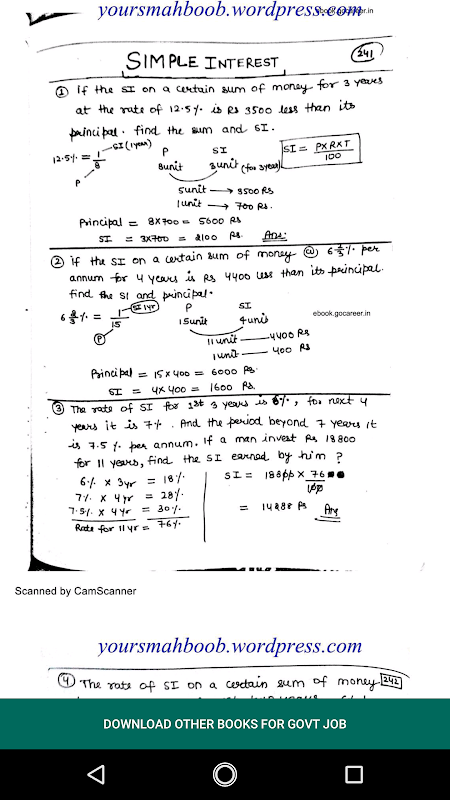 yoursmahboob.wordpress.com
ebook.gocareer.in
241
SIMPLE INTEREST
① if the SI on a certain sum of money for 3 years
at the rate of 12.5% is Rs 3500 less than its
principal. find the sum and SI.
12.5% = 1/8
SI (1 year)
P
P SI
8unit 3unit (for 3year)
SI = PXRXT/100
5unit → 3500 Rs
1unit → 700 Rs.
Principal = 8X700 = 5600 Rs
SI = 3X700 = 2100 Rs. Ans:
② if the SI on a certain sum of money @ 6 2/3 % per
annum for 4 years is Rs 4400 less than its principal.
find the SI and principal.
6 2/3 % = 1/15
SI 1yr
P
P SI
15unit 4unit
ebook.gocareer.in
11unit — 4400 Rs
1unit — 400 Rs
Principal = 15 X 400 = 6000 Rs.
SI = 4X 400 = 1600 Rs.
③ The rate of SI for 1st 3 years is 6%, for next 4
years it is 7%. And the period beyond 7 years it
is 7.5% per annum. if a man invest Rs 18800
for 11 years, find the SI earned by him ?
6% X 3yr = 18%
7% X 4yr = 28%
7.5% X 4yr = 30%
Rate for 11yr = 76%
SI = 18800 X 76
100
= 14288 Rs Ans
Scanned by CamScanner
yoursmahboob.wordpress.com
④ The rate of SI on a certain sum of money 242
DOWNLOAD OTHER BOOKS FOR GOVT JOB